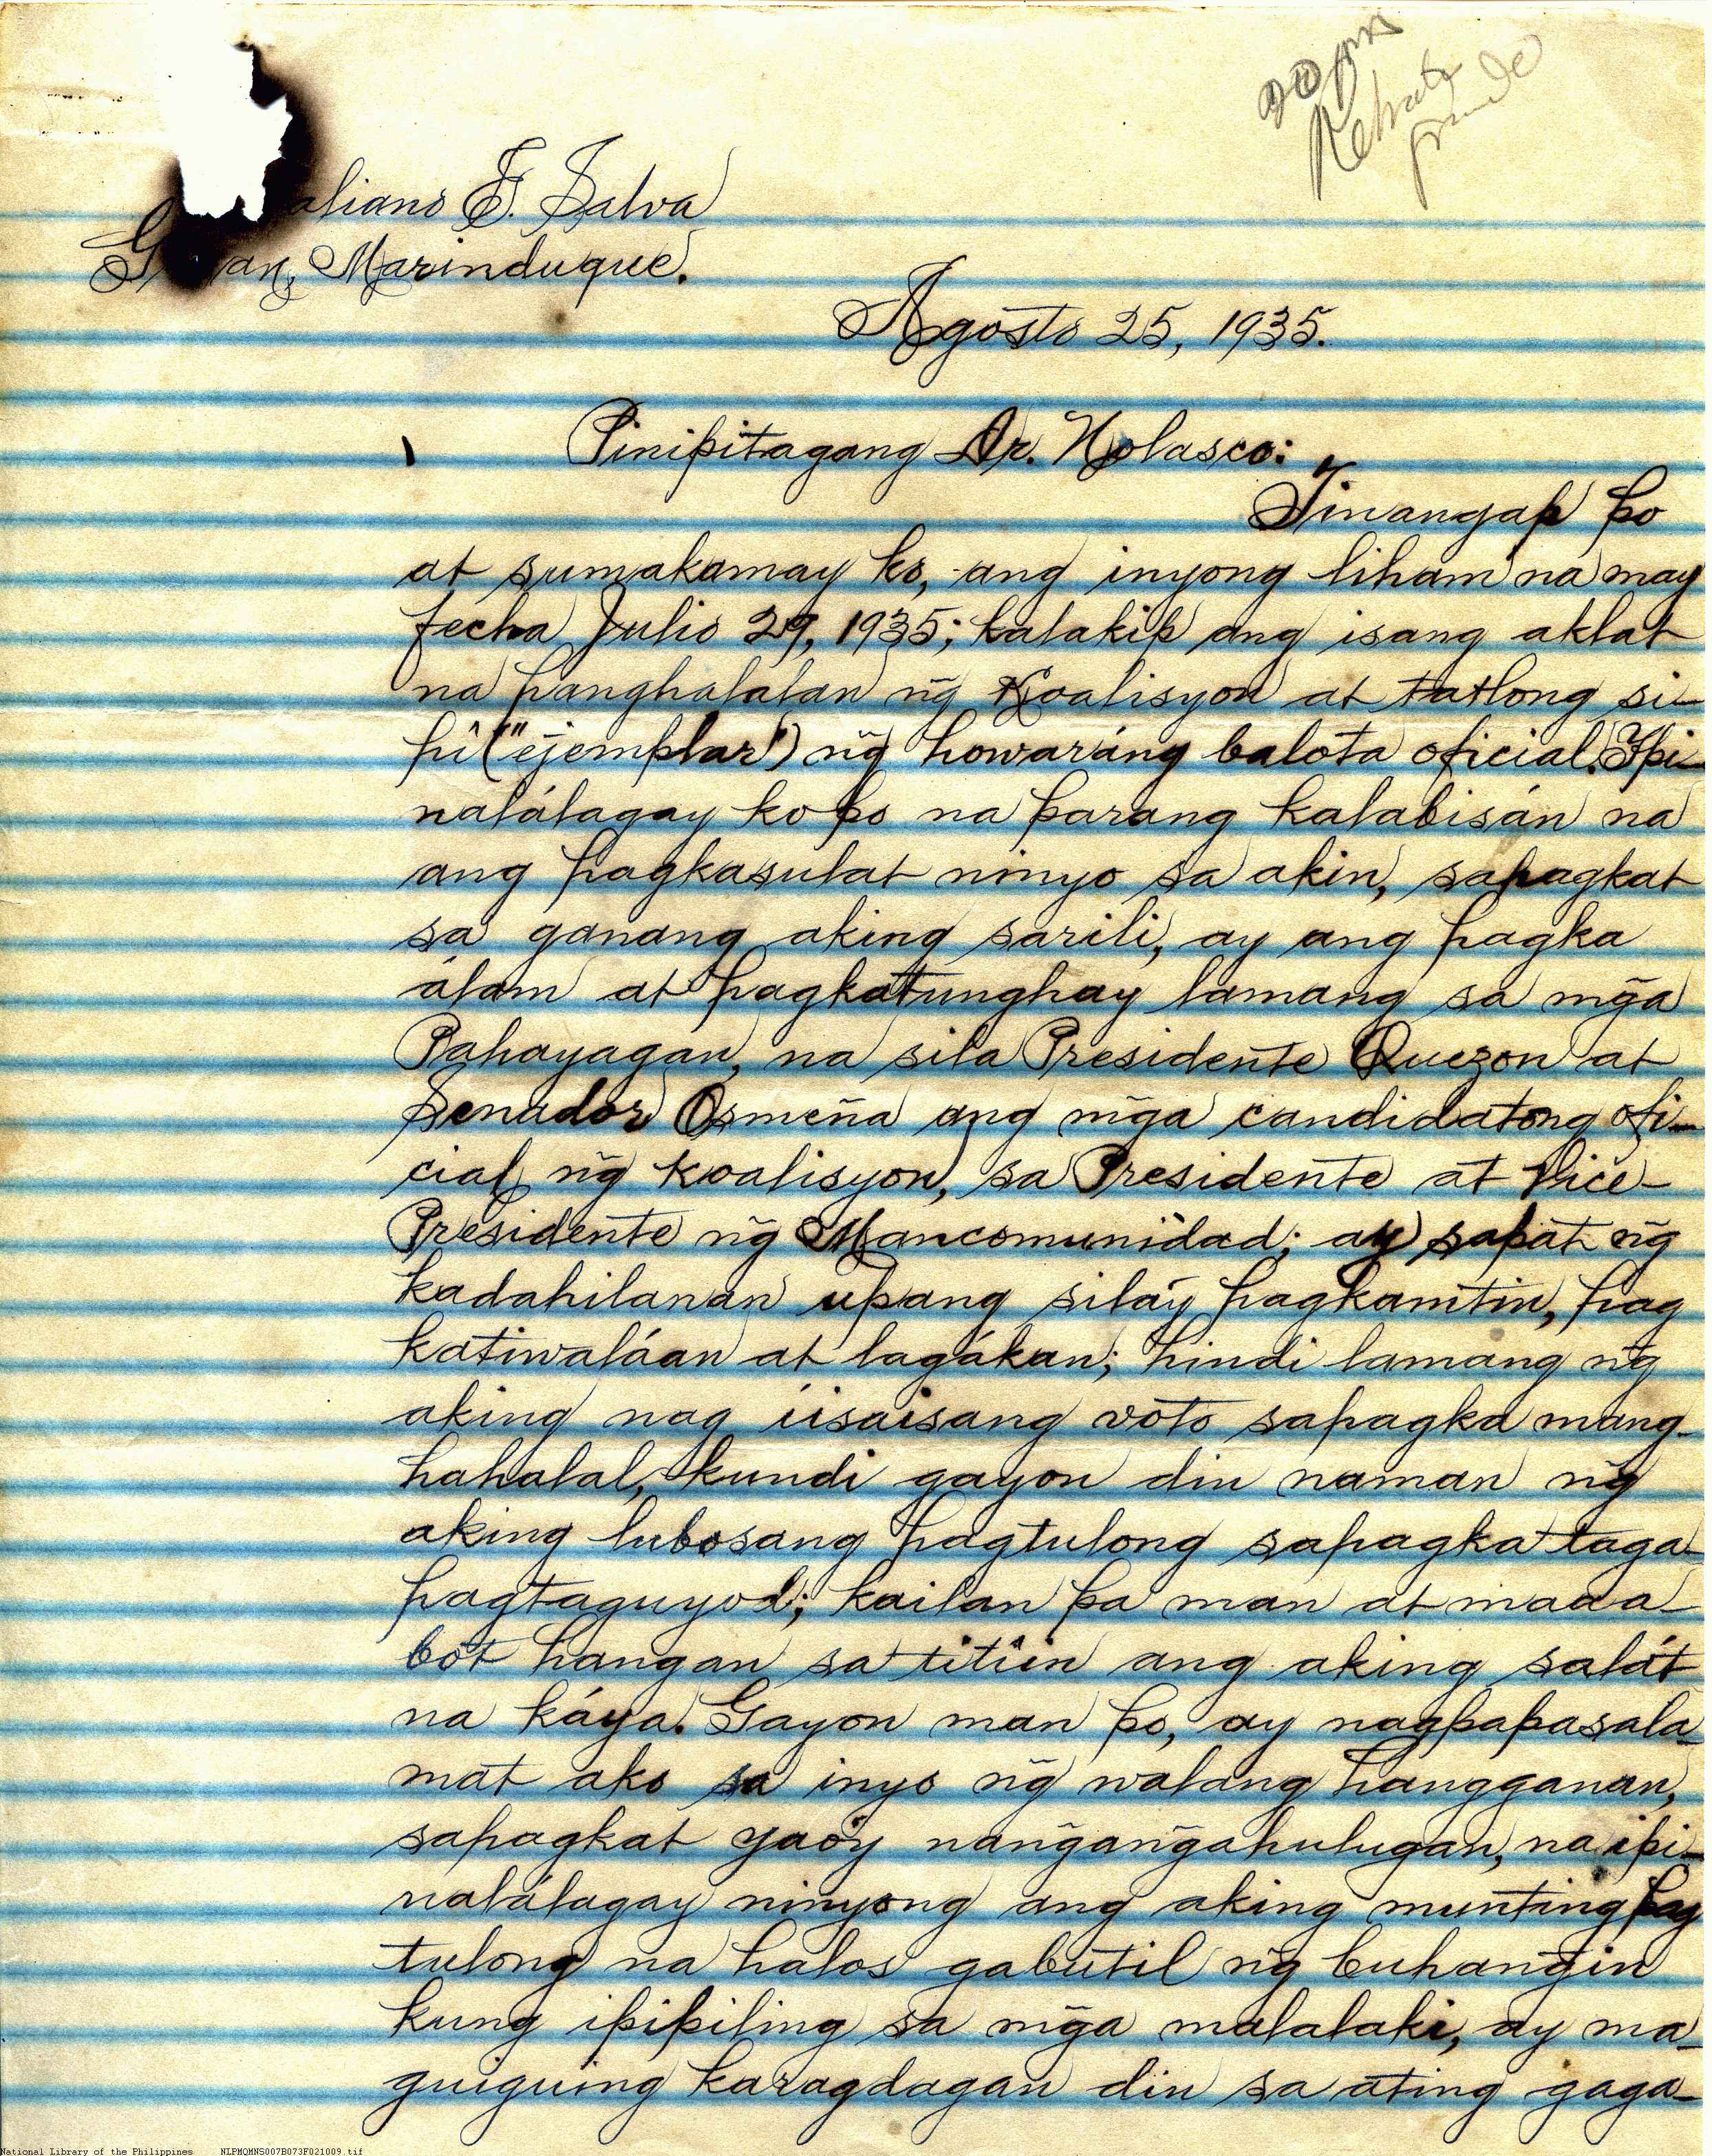 aliano F. Salva
G an, Marinduque.
Agosto 25, 1935.
Pinipitagang Dr. Nolasco:
Tinangap po
at sumakamay ko, ang inyong liham na may
fecha Julio 27, 1935; kalakip ang isang aklat
na panghalalan ñg Koalisyon at tatlong si-
pi ("ejemplar") ñg howaráng balota oficial. Ipi-
nalálagay ko po na parang kalabisán na
ang pagkasulat ninyo sa akin, sapagkat
sa ganang aking sarili, ay ang pagka
álam at pagkatunghay lamang sa mg̃a
Pahayagan, na sila Presidente Quezon at
Senador Osmeña ang mg̃a candidatong ofi-
cial ñg koalisyon, sa Presidente at Vice-
Presidente ñg Mancomunidad; ay sapat ñg
kadahilanan upang sila'y pagkamtin, pag
katiwaláan at lagákan; hindi lamang ñg
aking nag iisaisang voto sapagka mang-
hahalal, kundi gayon din naman ñg
aking lubosang pagtulong sapagka taga-
pagtaguyod; kailan pa man at maaa-
bot hangan sa titiin ang aking salát
na káya. Gayon man po, ay nagpapasala-
mat ako sa inyo ñg walang hangganan,
sapagkat yao'y nañgañgahulugan, na ipi-
nalálagay ninyong ang aking munting pag
tulong na halos gabutil ñg buhañgin
kung ipipiling sa mg̃a malalaki, ay ma-
guiguing karagdagan din sa ating gaga-
National Library of the Philippines NLPMQMNS007B073F021009.tif